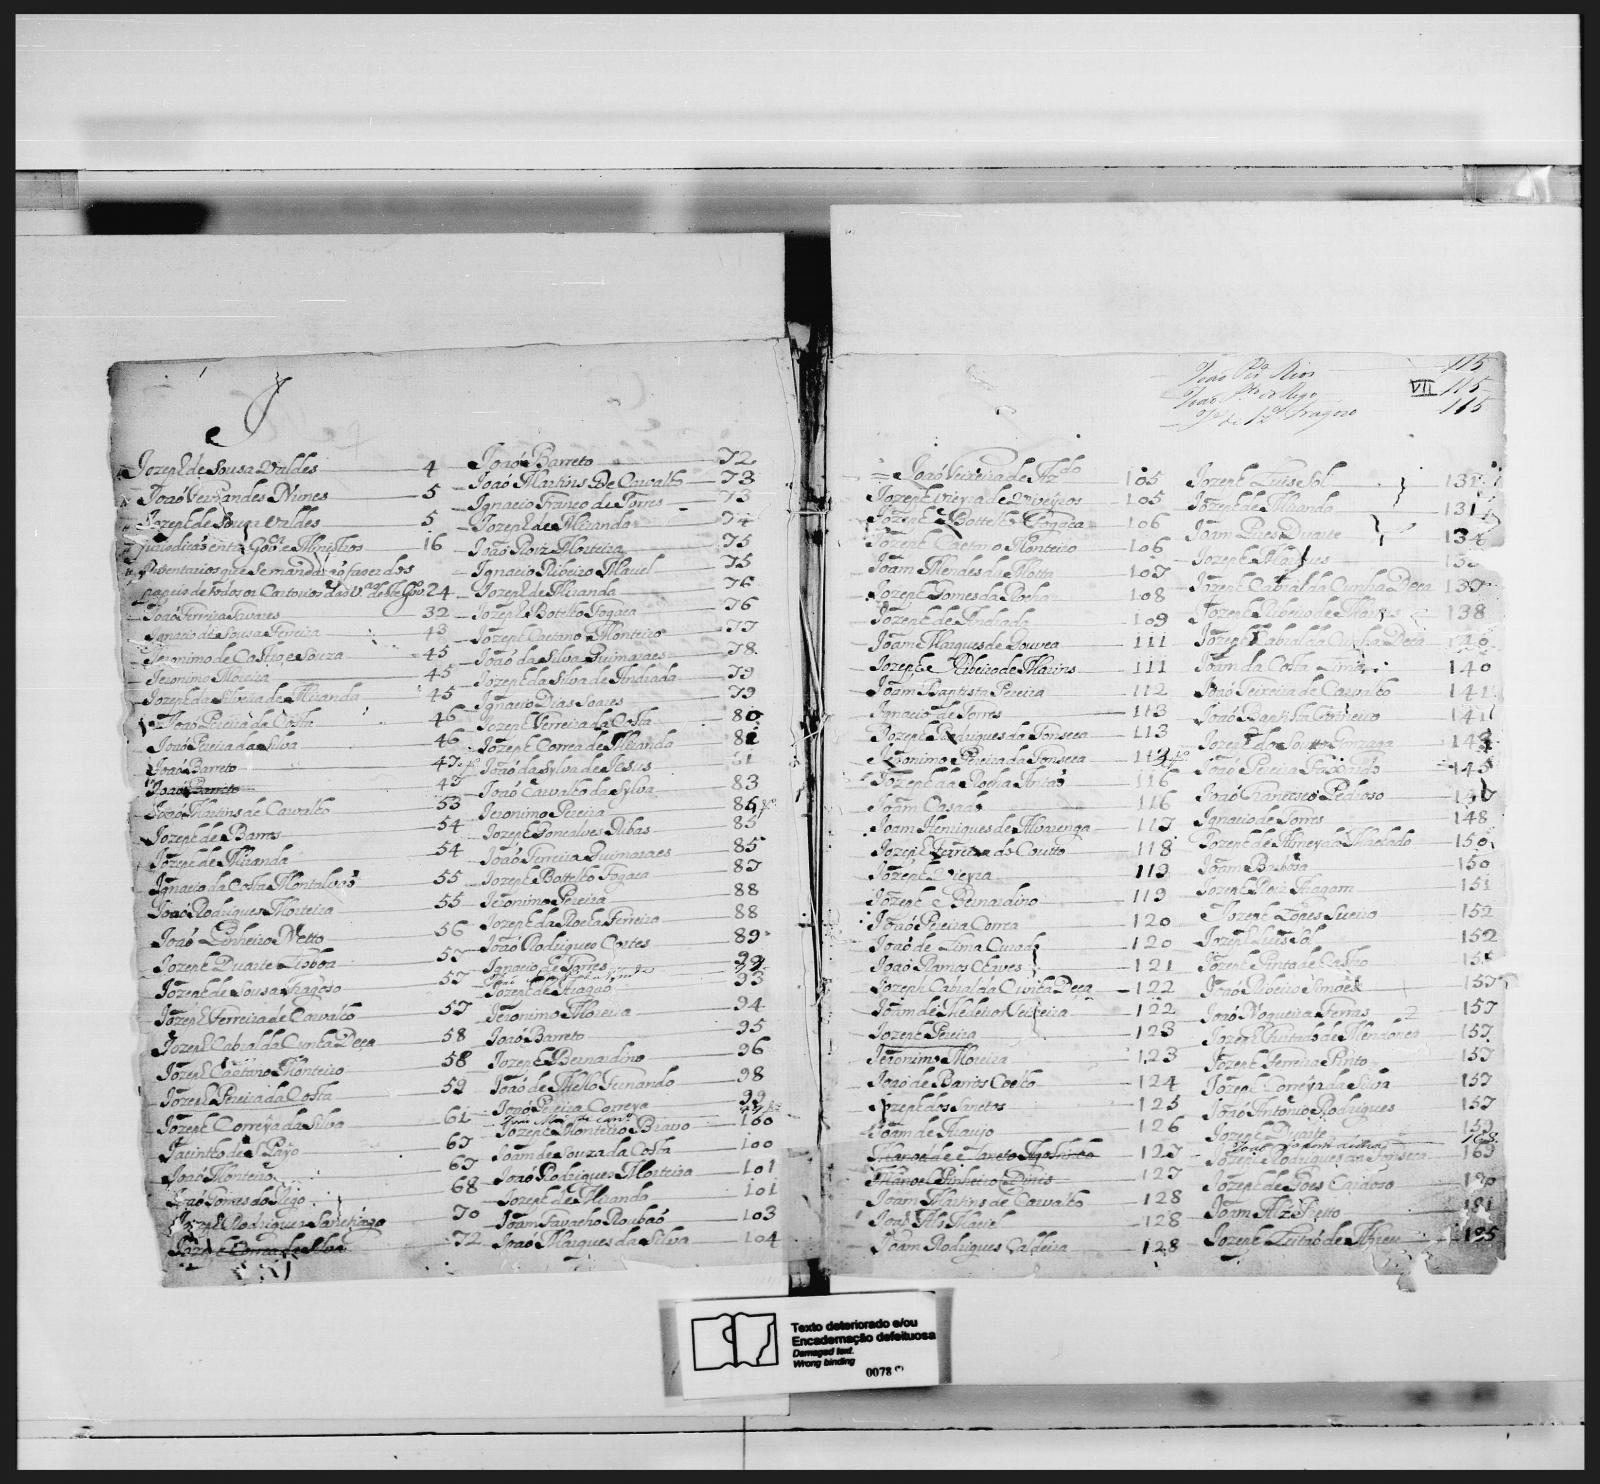 J
Jozeph de Sousa Valdes 4
Joaó Fernandes Nunes 5
Jozeph de Souza Valdes 5
Jurisdicaó entre Govor. e Menistros 16
Inventarios que se mandaraó fazer dos
papeis de todos os Cartorios 24
Joaó Ferreira Tavares 32
Ignacio de Sousa Ferreira 43
Jeronimo de Castro e Souza 45
Jeronimo Moreira 45
Jozeph da Silveira de Miranda 45
Joaó Pereira da Costa 46
Joaó Pereira da Silva 46
Joaó Barreto 47
Joaó Barreto 47
Joaó Martins de Carvalho 53
Jozeph de Barros 54
Jozeph de Miranda 54
Ignacio da Costa Montalvaó 55
Joaó Rodrigues Morteira 55
Joaó Pinheiro Netto 56
Jozeph Duarte Lisboa 57
Jozeph de Sousa Fragozo 57
Jozeph Ferreira de Carvalho 57
Jozeph Cabral da Cunha Deça 58
Jozeph Caetano Monteiro 58
Jozeph Pereira da Costa 59
Jozeph Correya da Silva 61
Jacintho de S. Payo 67
Joaó Monteiro 67
Joaó Gomes do Rego 68
Jozeph Rodrigues 70
Jozeph Correa da Silva 72
Joaó Barreto 72
Joaó Martins De Carvalho 73
Ignacio Franco de Torres 73
Jozeph de Miranda 74
Joaó Roiz Morteira 75
Ignacio Ribeiro Maciel 75
Jozeph de Miranda 76
Jozeph Botelho Fogaca 76
Jozeph Caetano Monteiro 77
Joaó da Silva Guimaraes 78
Jozeph da Silva de Andrada 79
Ignacio Dias Soares 79
Jozeph Ferreira da Costa 80
Jozeph Correa de Miranda 81
Joaó da Sylva de Jesus 81
Joaó Carvalho da Sylva 83
Jeronimo Pereira 84
Jozeph Goncalves Ribas 85
Joaó Ferreira Guimaraes 85
Jozeph Bottelho Fogaca 87
Jeronimo Pereira 88
Jozeph da Rocha Ferreira 88
Joaó Rodrigues Cortes 89
Ignacio de Torres
Jozeph de Araujo 93
Jeronimo Moreira 94
Joaó Barreto 95
Jozeph Bernardino 96
Joaó de Mello Fernando 98
Joaó Pereira Correya 99
Jozeph Monteiro Bravo 100
Joam de Souza da Costa 100
Joaó Rodrigues Morteira 101
Jozeph de Miranda 101
Joam Favacho Roubaó 103
Joaó Marques da Silva 104
Joaó Pra. Rios 115
Joaó Rego VII 115
Fragozo 115
Joaó Teixeira de Azdo 105
Jozeph Vieyra de 105
Jozeph Bottelho Fogaca 106
Jozeph Caetano Monteiro 106
Joam Mendes da Motta 107
Jozeph Gomes da Rocha 108
Jozeph de Andrada 109
Joam Marques de Gouvea 111
Jozeph Ribeiro de Marins 111
Joam Baptista Pereira 112
Ignacio de Torres 113
Jozeph Rodrigues da Fonseca 113
Jeronimo Pereira da Fonseca
Jozeph da Rocha Antaó 116
Joam Casado 116
Joam Henriques de Alvarenga 117
Jozeph Ferreira do Coutto 118
Jozeph Vieyra 119
Jozeph Bernardino 119
Joaó Pereira Correa 120
Joaó de Lima Curado 120
Joaó Ramos Chaves 121
Jozeph Cabral da Cunha Deça 122
Joam de Medeiros Teixeira 122
Jozeph Pereira 123
Jeronimo Moreira 123
Joaó de Barros Coelho 124
Jozeph dos Santos 125
Joam de Araujo 126
127
Manoel Pinheiro 127
Joam Martins de Carvalho 128
Joaó Als Maciel 128
Joam Rodrigues Caldeira 128
Jozeph Luis Sol 131
Jozeph de Miranda 131
Joam Pires Duarte 134
Jozeph Marques
Jozeph Cabral da Cunha Deça 137
Jozeph Ribeiro de Marins 138
Jozeph Cabral da Cunha Deça 140
Joam da Costa Lima 140
Joaó Teixeira de Carvalho 141
Joaó Baptista 141
Jozeph do Souto Gonzaga 143
Joaó Pereira Faxardo 145
Joaó Francisco Pedroso
Ignacio de Torres 148
Jozeph de Almeyda Machado 150
Joam Barboza 150
Jozeph Roiz Aragam 151
Jozeph Lopes Sueiro 152
Jozeph Luis Sol 152
Jozeph Pinto de Castro
Joaó Ribeiro Simoés 157
Joaó Nogueira Ferras 157
Jozeph Furtado de Mendonca 157
Jozeph Ferreira Pinto 157
Jozeph Correya da Silva 157
Joaó Antonio Rodrigues 157
Jozeph Duarte 159
168
Jozeph Rodrigues da Fonseca 169
Jozeph de Goes Cardozo
Joam Alz Preto 181
Jozeph Leitaó de Abreu 185
Texto deteriorado e/ou
Encadernação defeituosa
Damaged text.
Wrong binding
0078